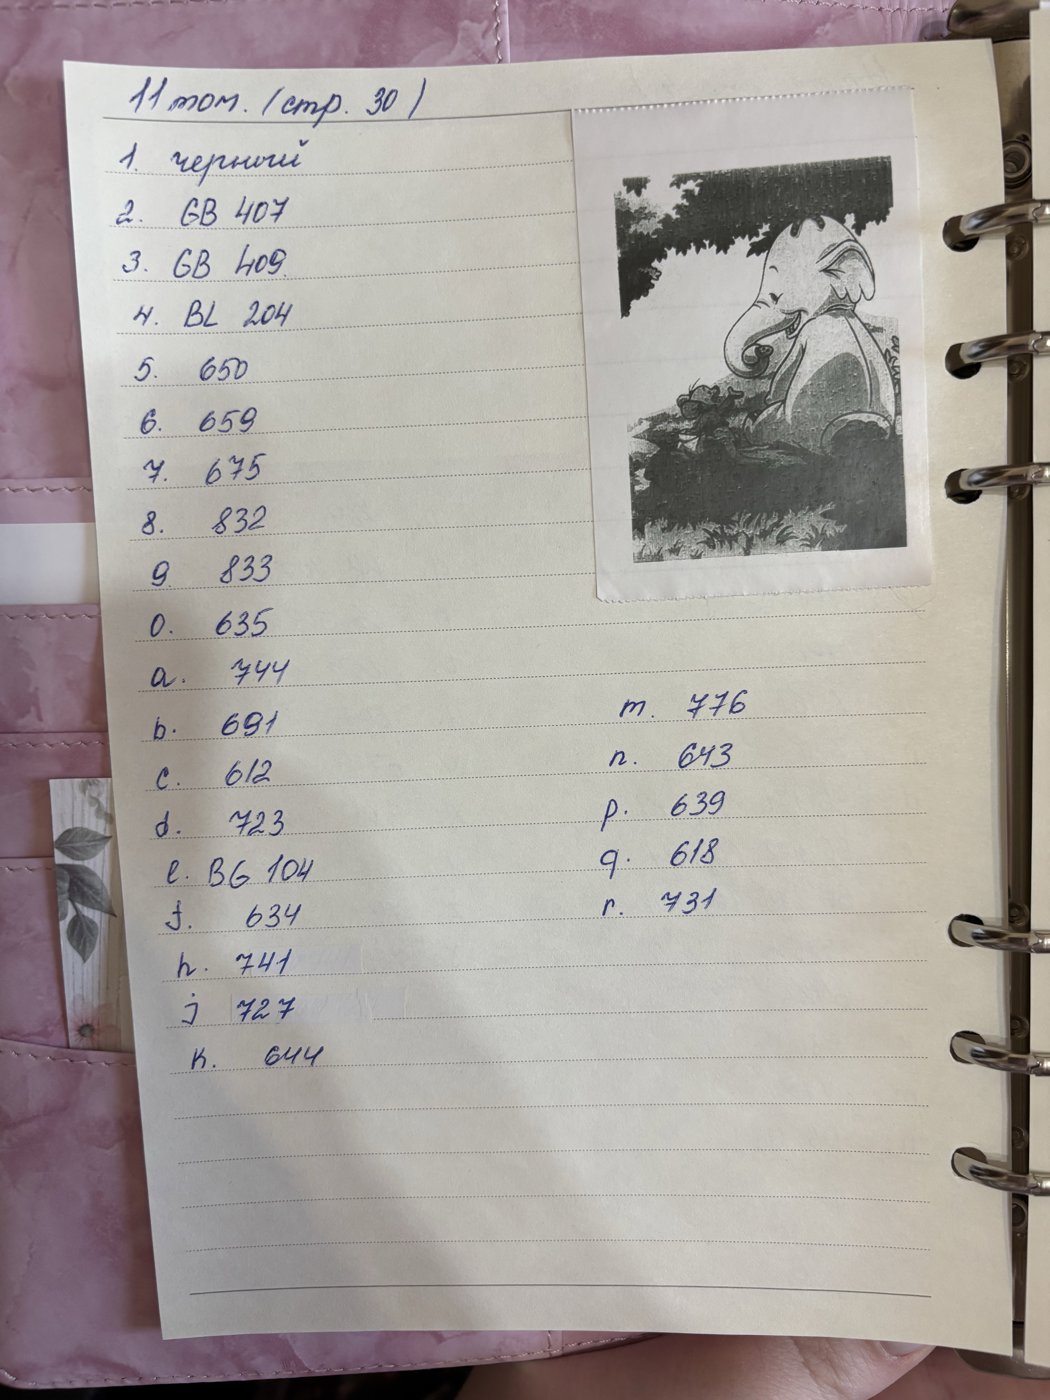 11 том. (стр. 30)
1. черный
2. GB 407
3. GB 409
4. BL 204
5. 650
6. 659
7. 675
8. 832
9 833
0. 635
a. 744
b. 691
c. 612
d. 723
e. BG 104
f. 634
h. 741
j 727
k. 644
m. 776
n. 643
p. 639
q. 618
r. 731